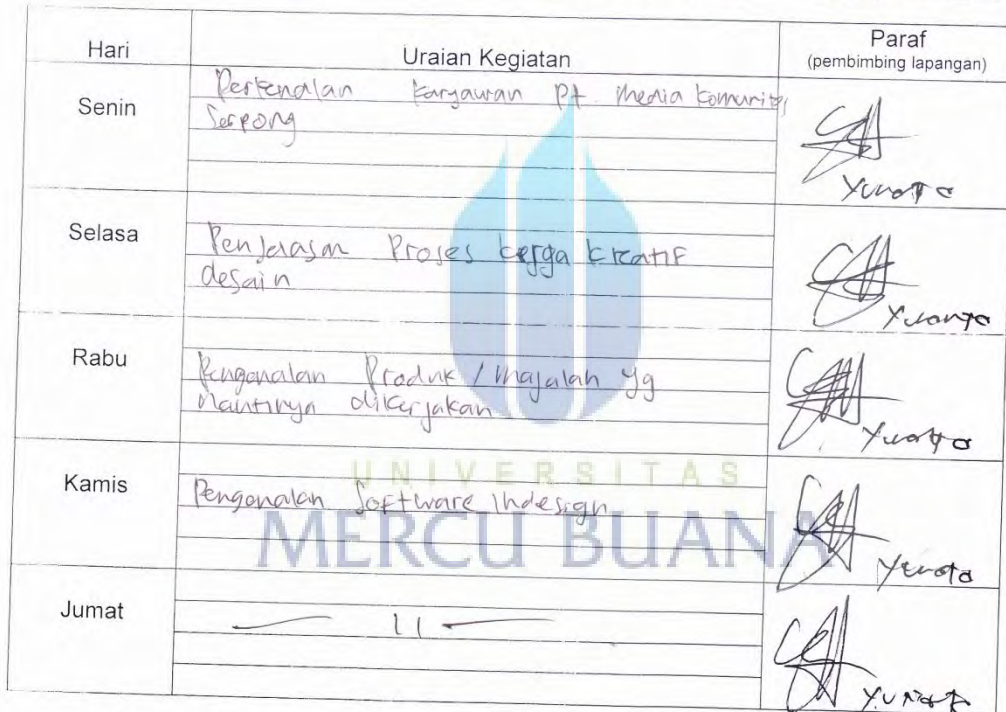 Hari Uraian Kegiatan Paraf
(pembimbing lapangan)
Senin
Perkenalan karyawan Pt Media komunitas
Serpong
Yunanto
Selasa
Penjelasan Proses kerja kreatif
desain
Yunanto
Rabu
Pengenalan Produk / majalah yg
nantinya dikerjakan
Yunanto
UNIVERSITAS
Kamis
Pengenalan Software Indesign
MERCU BUANA
Jumat
— 11 —